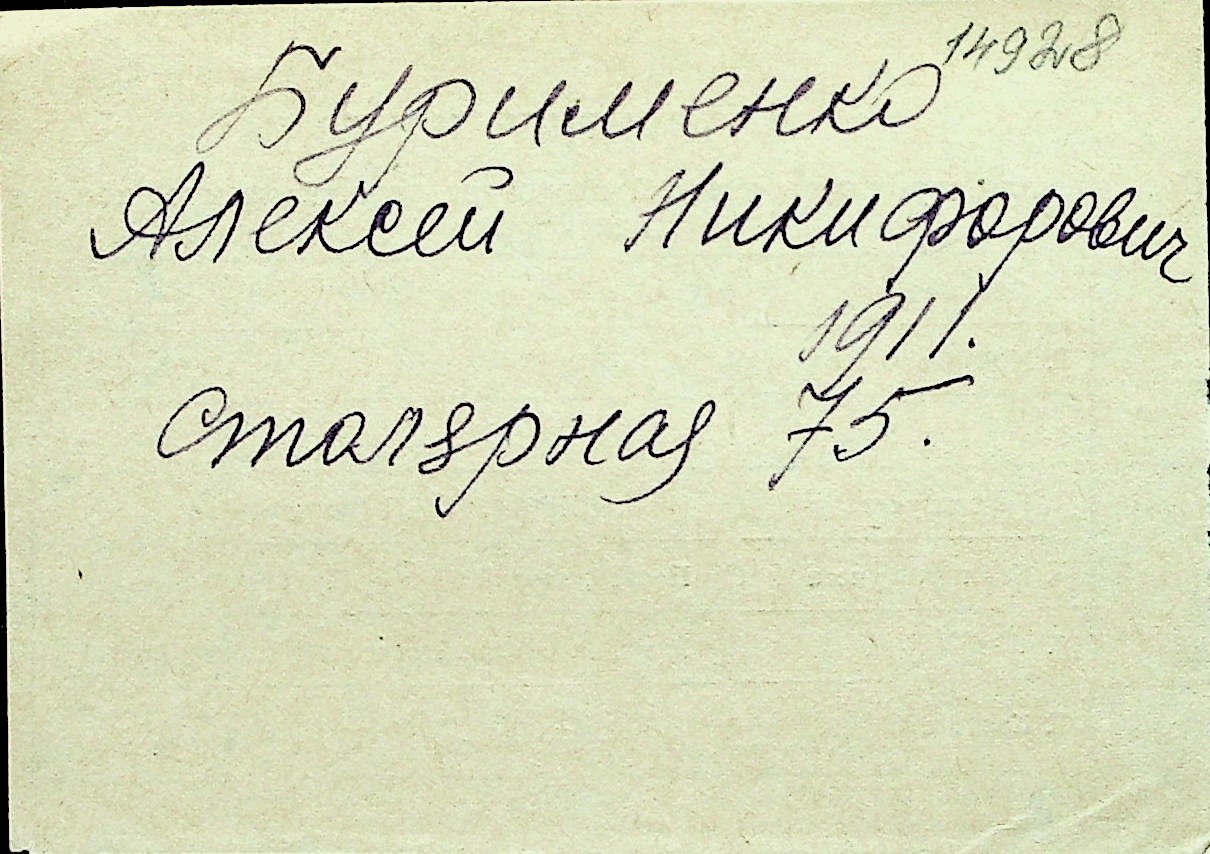 14928
Буrименко
Алексей Никифорович
1911.
Столярная 75.